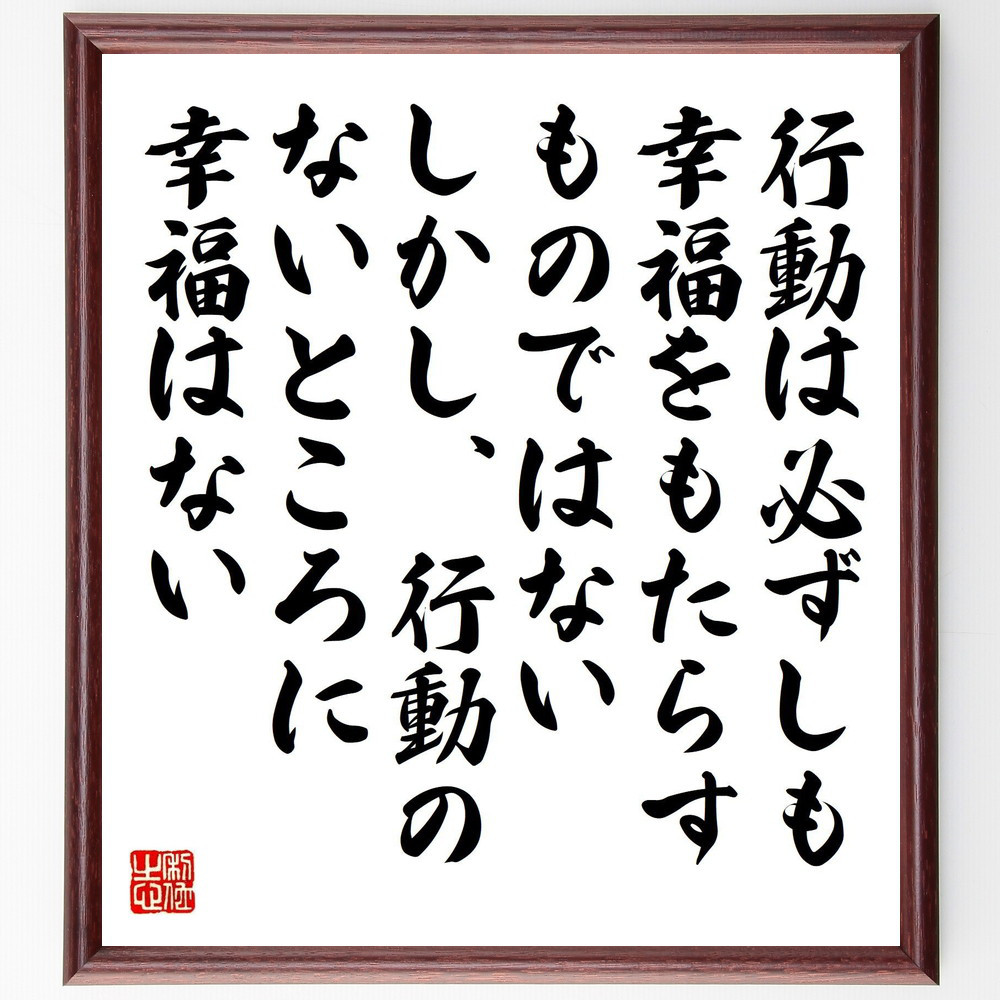 行動は必ずしも
幸福をもたらす
ものではない
しかし、行動の
ないところに
幸福はない